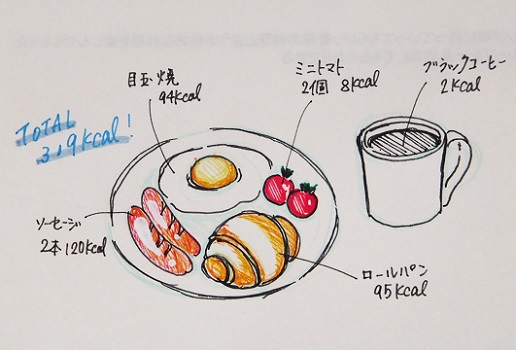 目玉焼
94kcal
ミニトマト
2個 8kcal
ブラックコーヒー
2kcal
TOTAL
319kcal!
ソーセージ
2本120kcal
ロールパン
95kcal